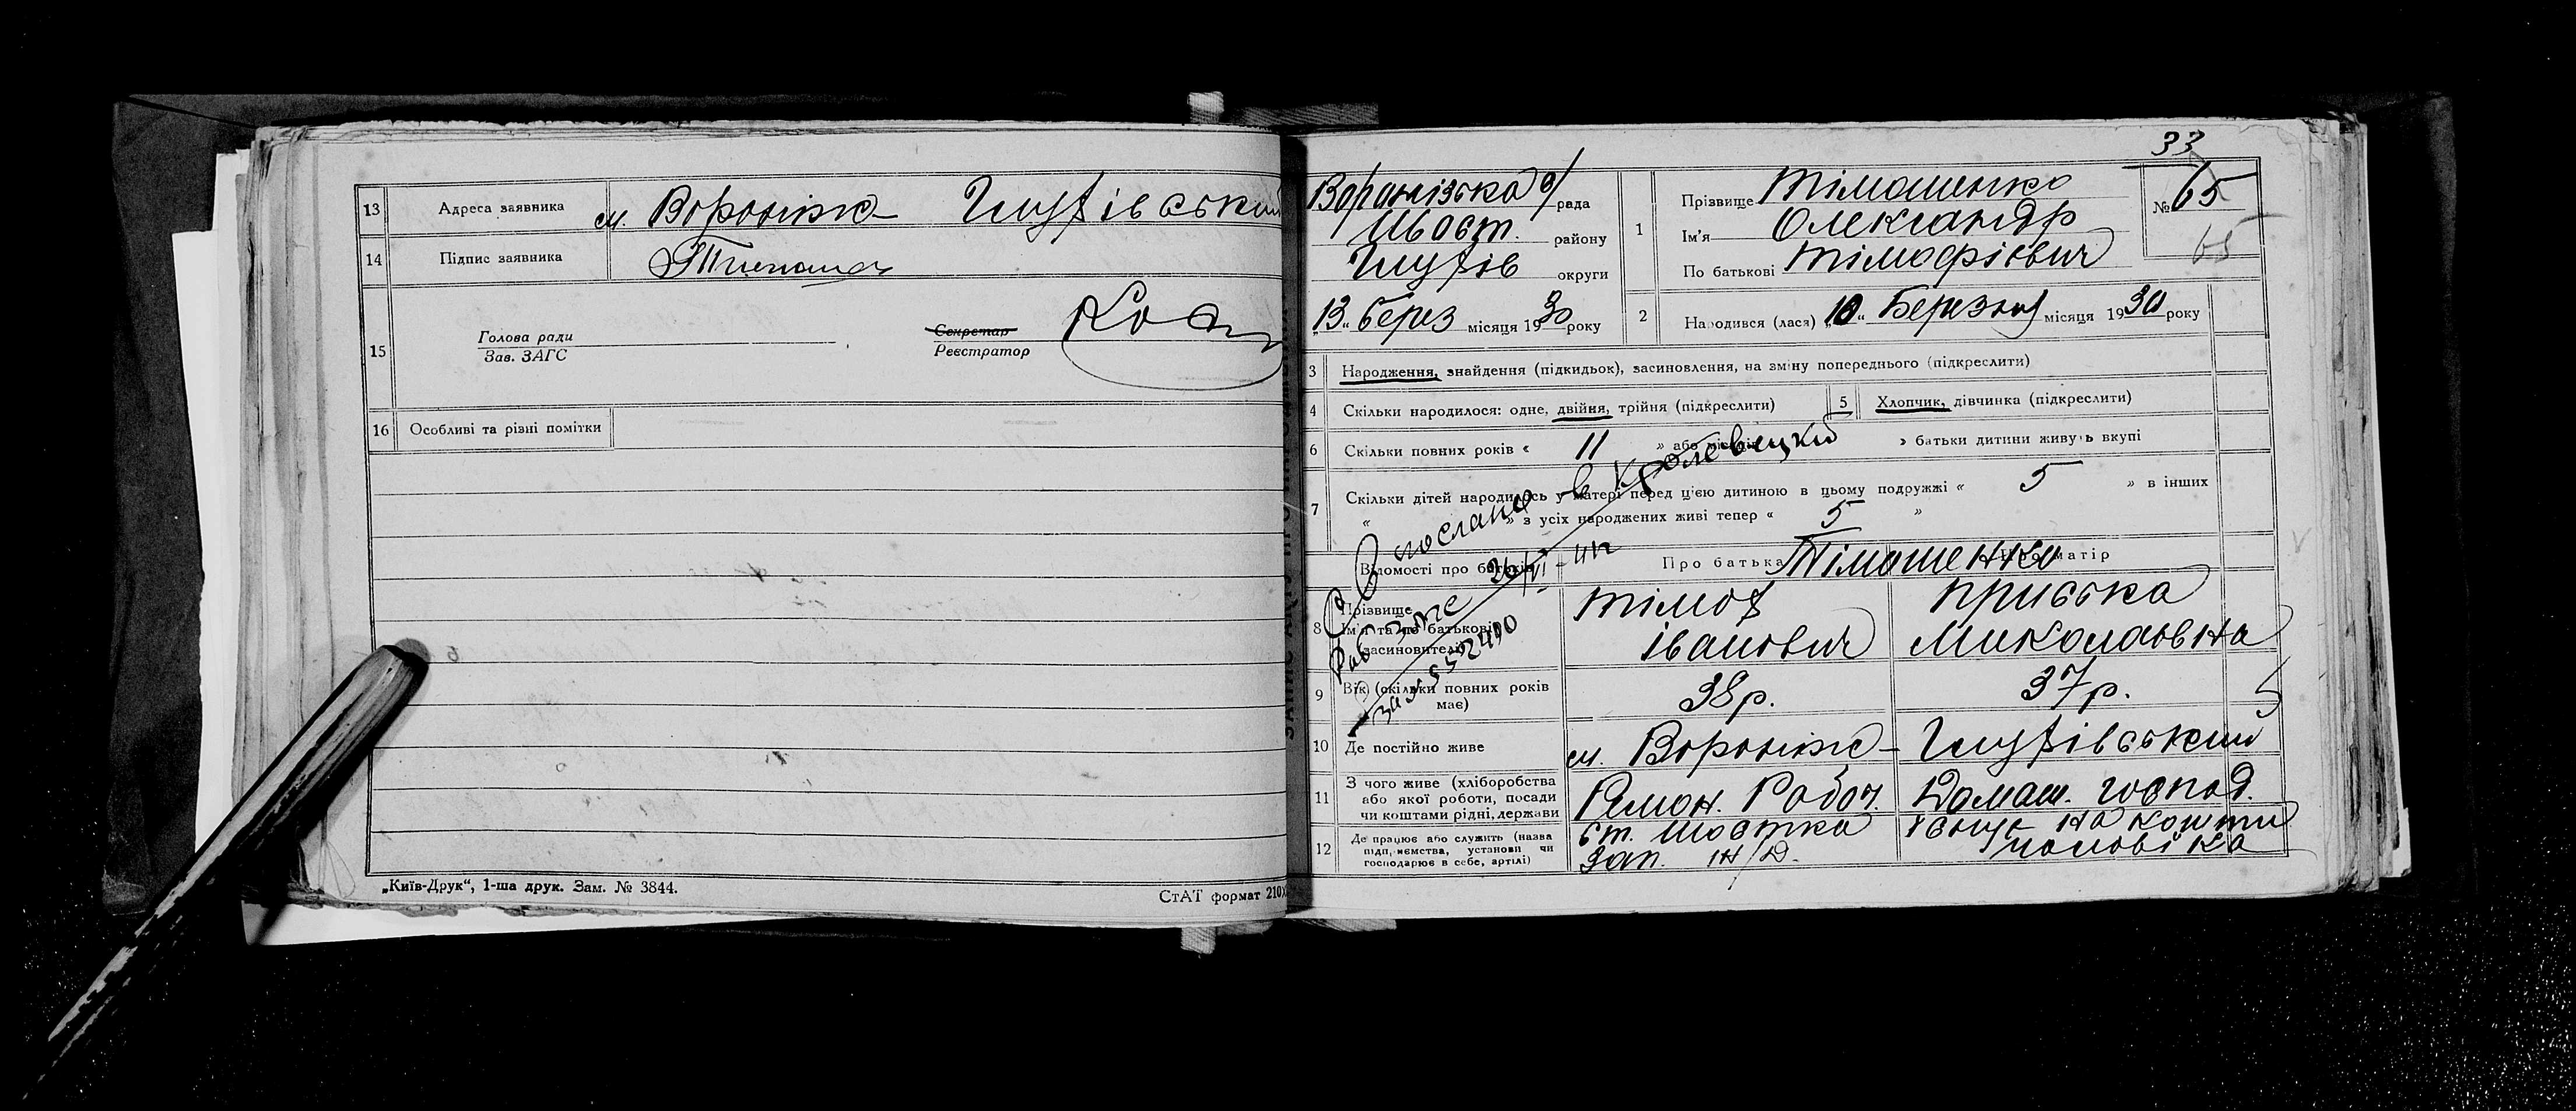 13 Адреса заявника м. Вороніж – Глухівський
14 Підпис заявника
15 Голова ради
Зав. ЗАГС
Секретар
Реєстратор
16 Особливі та різні помітки
„Київ-Друк“, 1-ша друк. Зам. № 3844.
СтАТ формат 210
33
Воронізька с/рада
Шост. району
Глухів округи
„13“ берез місяця 1930 року
1 Прізвище Тімошенко
Ім'я Олександр
По батькові Тімофієвич
№ 65
65
2 Народився (лася) „10“ Березня місяця 1930 року
3 Народження, знайдення (підкидьок), засиновлення, на зміну попереднього (підкреслити)
4 Скільки народилося: одне, двійня, трійня (підкреслити)
5 Хлопчик, дівчинка (підкреслити)
6 Скільки повних років « 11 » або місяців » батьки дитини живуть вкупі
7 Скільки дітей народилось у матері перед цією дитиною в цьому подружжі « 5 » в інших
« » з усіх народжених живі тепер « 5 »
послано в Кролевецкий
за № 552400
Відомості про батьків
Про батька Тімошенко Про матір
8 Прізвище
Ім'я та по батькові
засиновителів
Тімох
Іванович
Приська
Миколаівна
9 Вік (скільки повних років має) 38 р. 37 р.
10 Де постійно живе м. Вороніж – Глухівський
11 З чого живе (хліборобства
або якої роботи, посади
чи коштами рідні, держави
Ремон. Робоч. Домаш. господ.
12 Де працює або служить (назва
підприємства, установи чи
господарює в себе, артілі)
ст. Шостка
Зап. ж/д.
на кошти
чоловіка